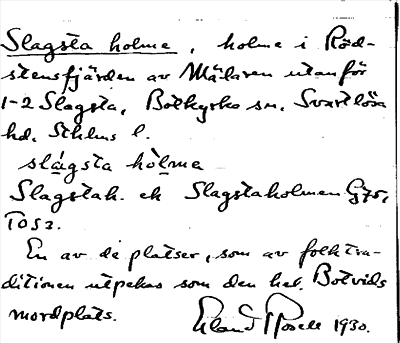 Slagsta holme, holme i Röd-
stensfjärden av Mälaren utanför
1-2 Slagsta, Botkyrka sn, Svartlösa
hd, Sthlms l.
slágsta hòlme
Slagstah. ek Slagstaholmen G75,
T052.
En av de platser, som av folktra-
ditionen utpekas som den hel. Botvids
mordplats.
Erland Rosell 1930.